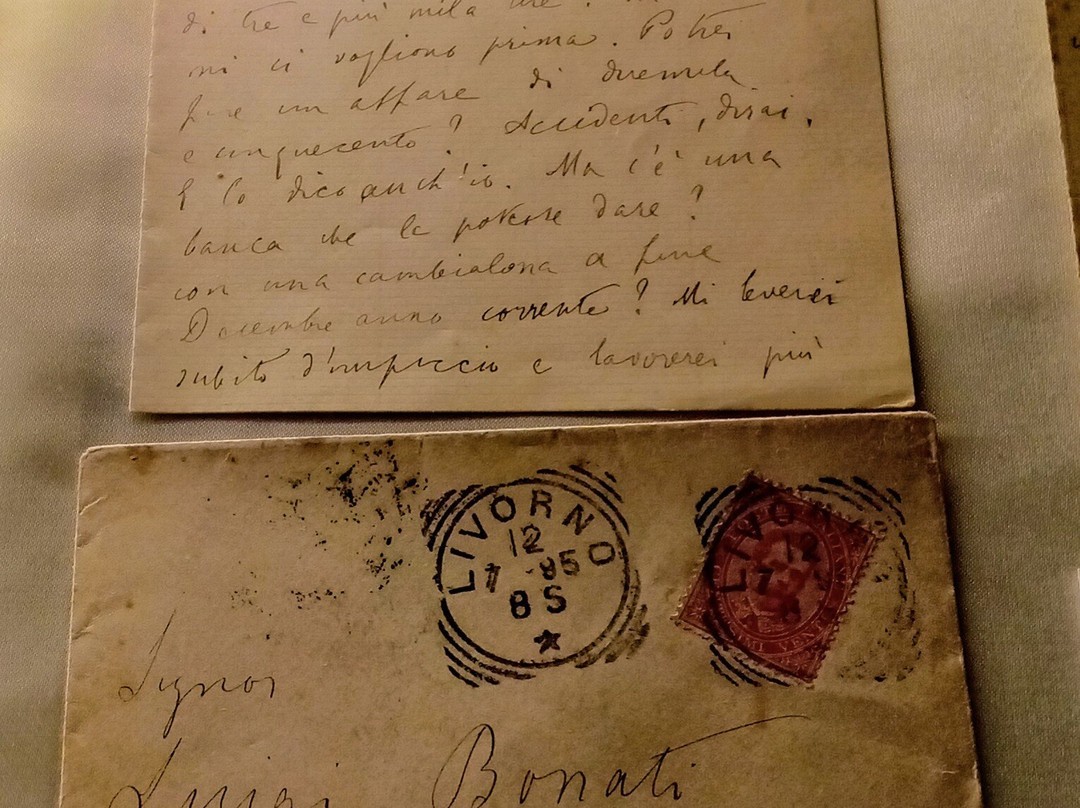 di tre e più mila lire
mi ci vogliono prima. Potrei
fare un affare di duemila
e cinquecento? Accidenti, dirai.
E lo dico anch'io. Ma c'è una
banca che le potesse dare?
con una cambialona a fine
Decembre anno corrente? Mi leverei
subito d'impiccio e lavorerei più
LIVORNO
12
7 -95
8 S
LIVORNO
12
7
8
VENTI
Signor
Luigi Bonati